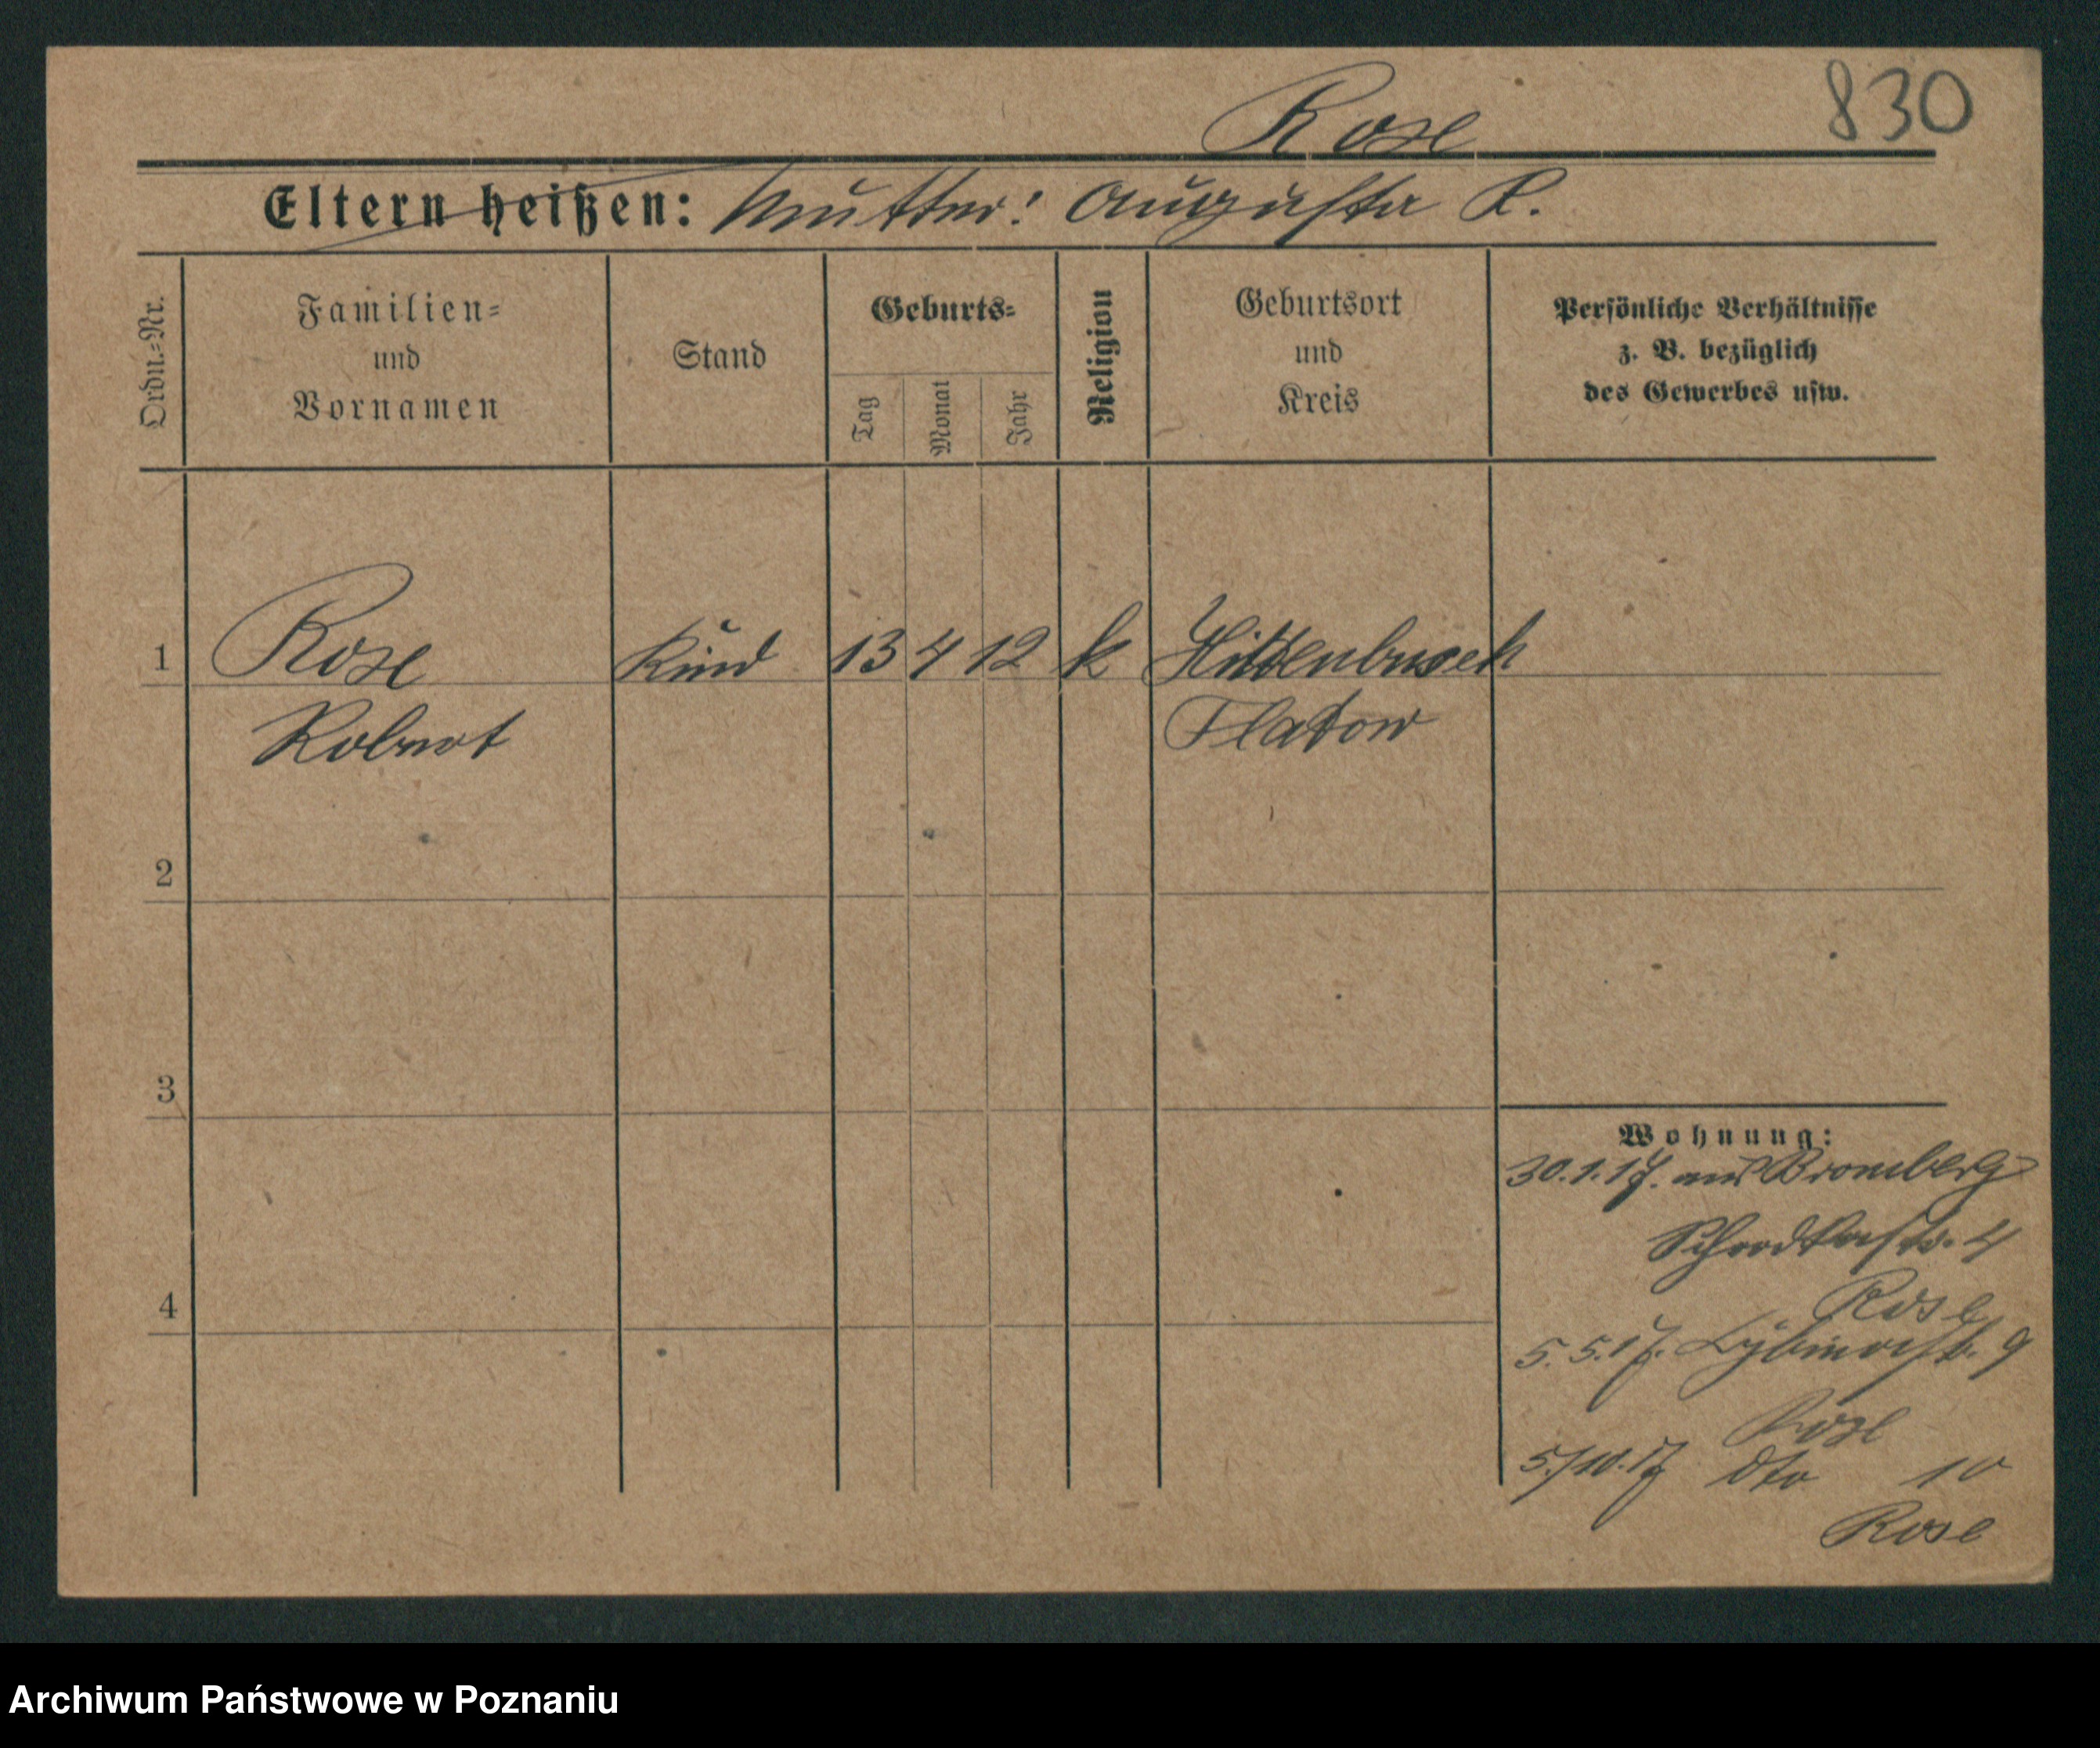 Rose
830
Eltern heißen: Mutter: Augusta R.
Ordn.-Nr.
Familien-
und
Vornamen
Stand
Geburts-
Tag
Monat
Jahr
Religion
Geburtsort
und
Kreis
Persönliche Verhältnisse
z. B. bezüglich
des Gewerbes usw.
1 Rose Kind 13 4 12 k Hüttenbusch
Robert Flatow
2
3
4
Wohnung:
30.1.17. aus Bromberg
Schrodkastr. 4
Rose
5.5.17. Cybinastr. 9
Rose
5./10.17 dto 10
Rose
Archiwum Państwowe w Poznaniu